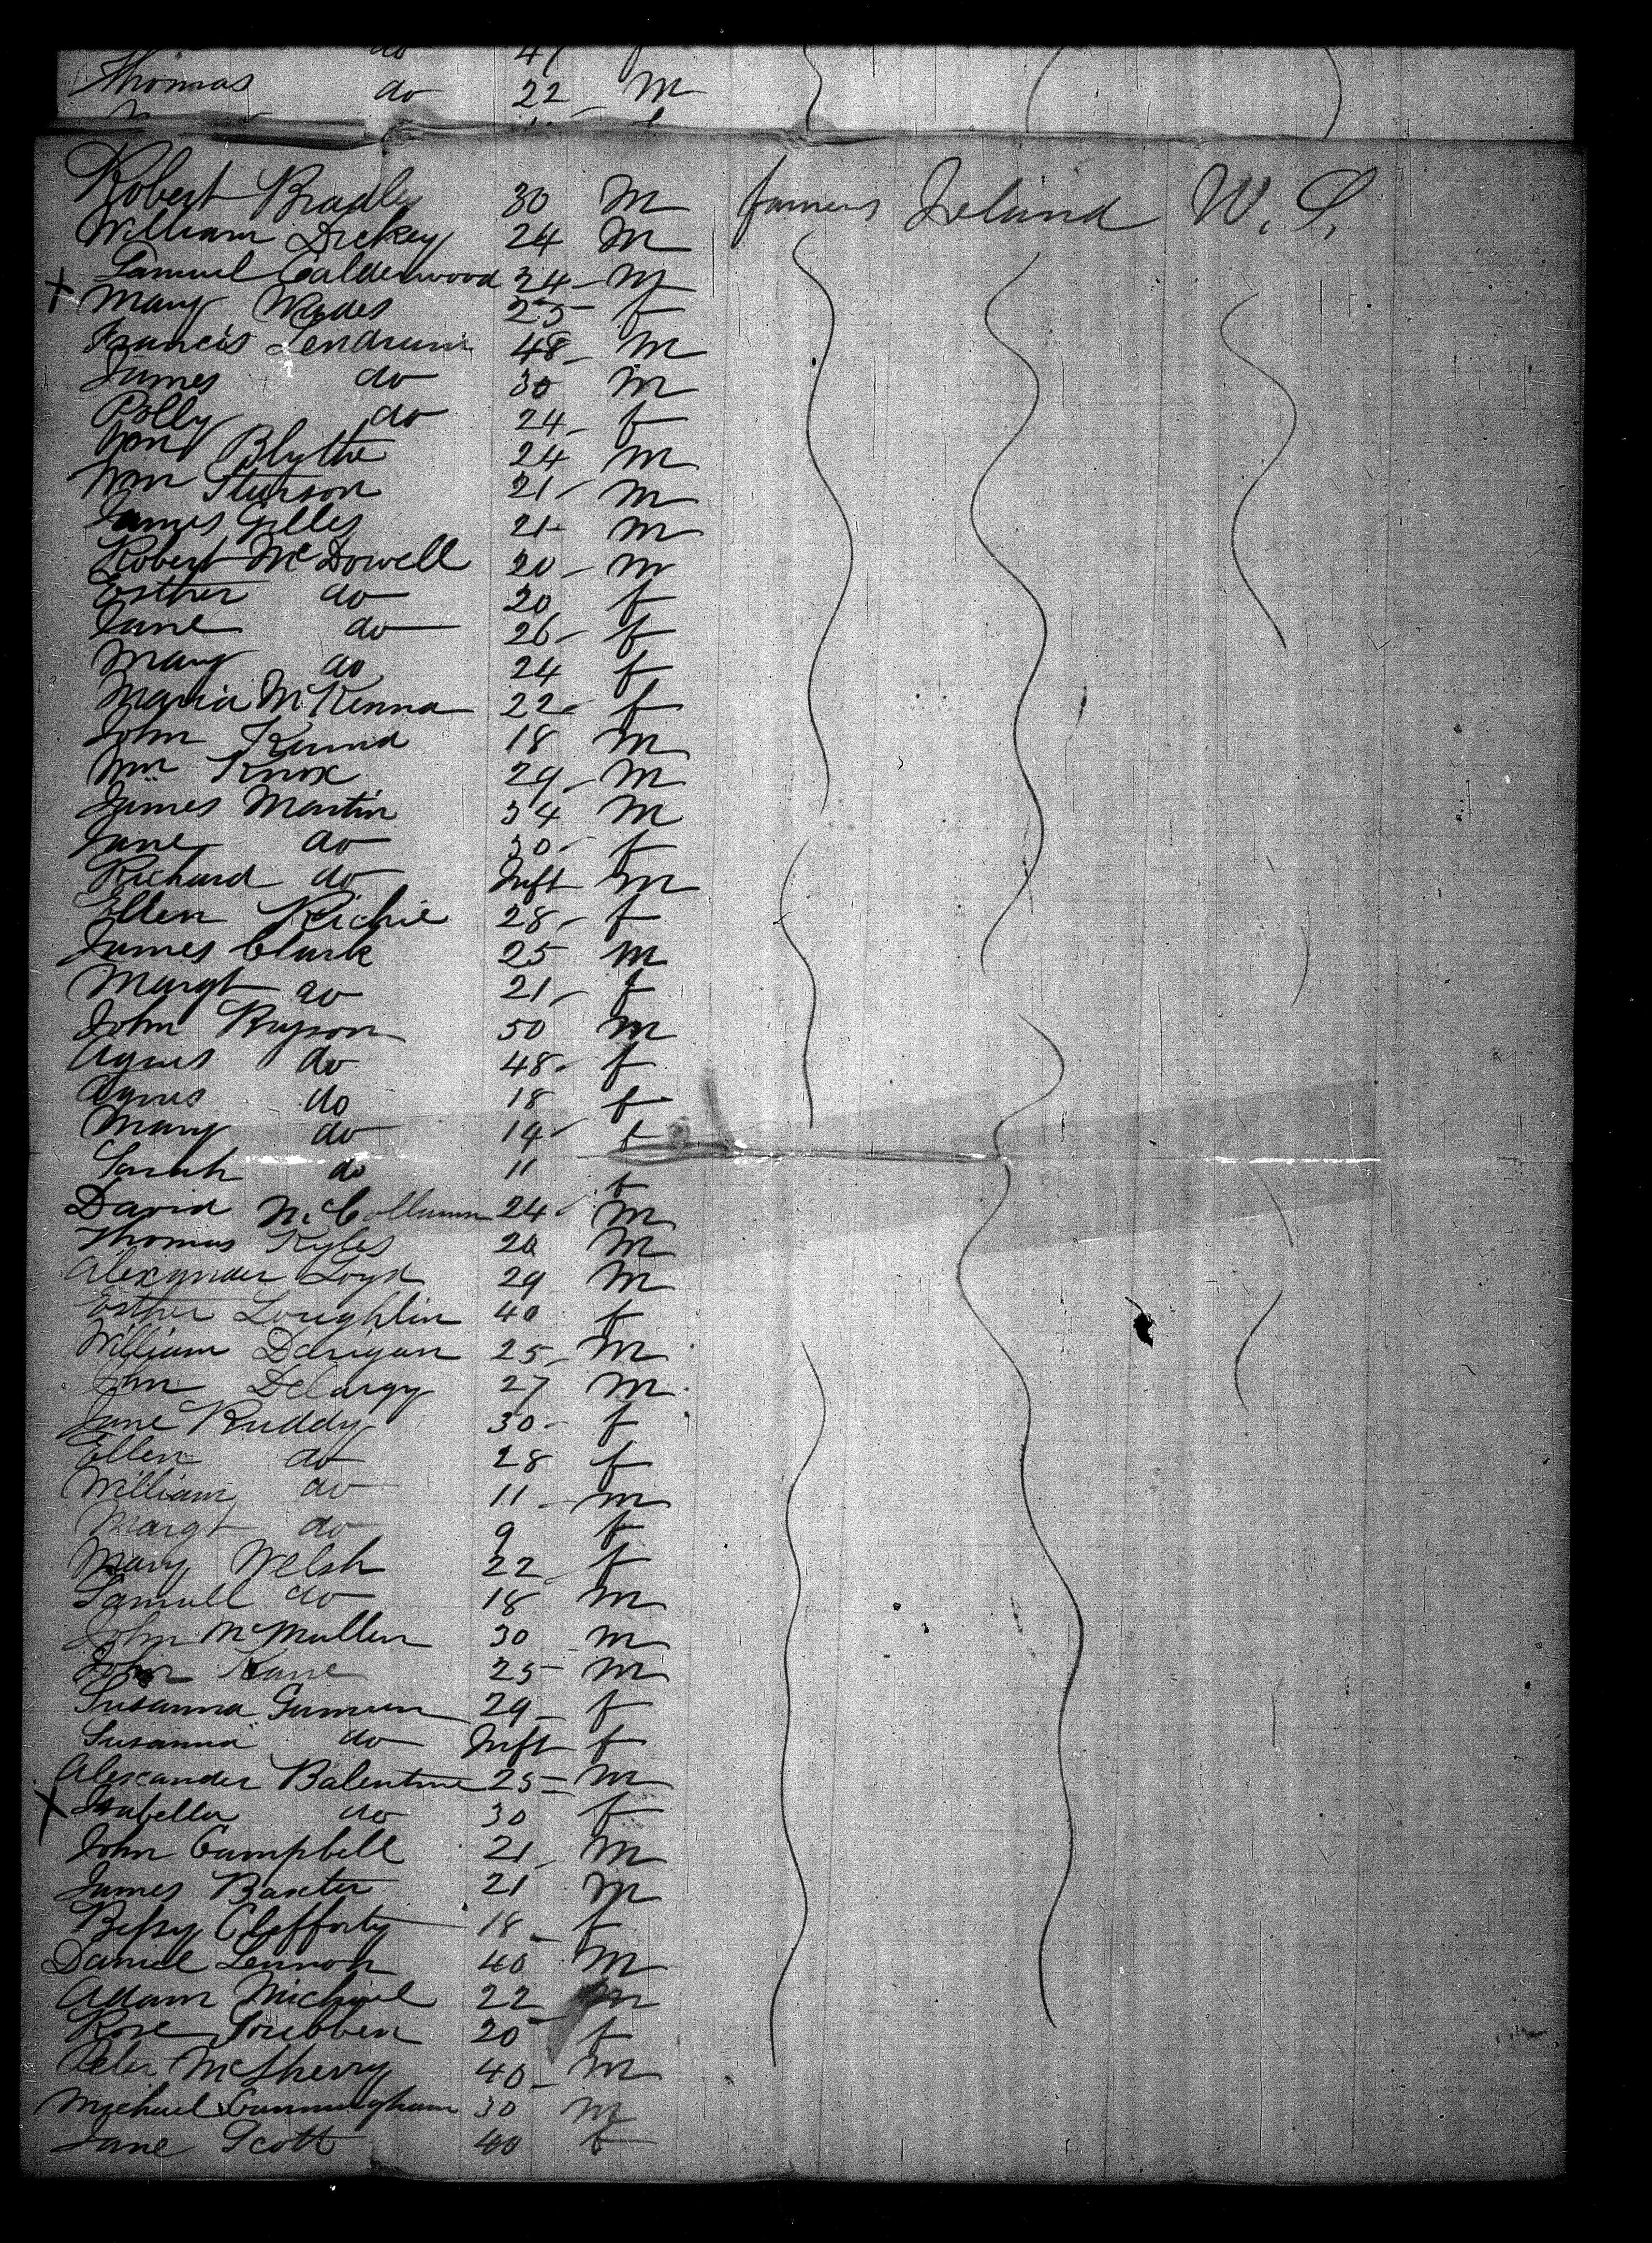 do 47 f
Thomas do 22 m
Robert Bradley 30 m farmers Ireland W. S.
William Dickey 24 m
Samuel Calderwood 34 m
x Mary Wades 25 f
Francis Lendrum 48 m
James do 30 m
Polly do 24 f
Wm Blythe 24 m
Wm Sturson 21 m
James Gilles 21 m
Robert McDowell 20 m
Esther do 20 f
Jane do 26 f
Mary do 24 f
Maria McKenna 22 f
John Kenna 18 m
Wm Knox 29 m
James Martin 34 m
Jane do 30 f
Richard do Inft m
Ellen Richie 28 f
James Clark 25 m
Margt do 21 f
John Bryson 50 m
Agnes do 48 f
Agnes do 18 f
Mary do 14 f
Sarah do 11 f
David McCollumn 24 m
Thomas Kyles 20 m
Alexander Loyd 29 m
Esther Loughlin 40 f
William Darigan 25 m
John Delargy 27 m
Jane Ruddy 30 f
Ellen do 28 f
William do 11 m
Margt do 9 f
Mary Welsh 22 f
Samuell do 18 m
John McMullen 30 m
John Kane 25 m
Susanna 29 f
Susanna do Inft f
Alexander Balentine 25 m
x Isabella do 30 f
John Campbell 21 m
James Baxter 21 m
Betsy Clefforty 18 f
Daniel Lennon 40 m
Adam Michael 22 m
Rose Gribben 20 f
Peter McSherry 40 m
Michael Cunningham 30 m
Jane Scott 40 f